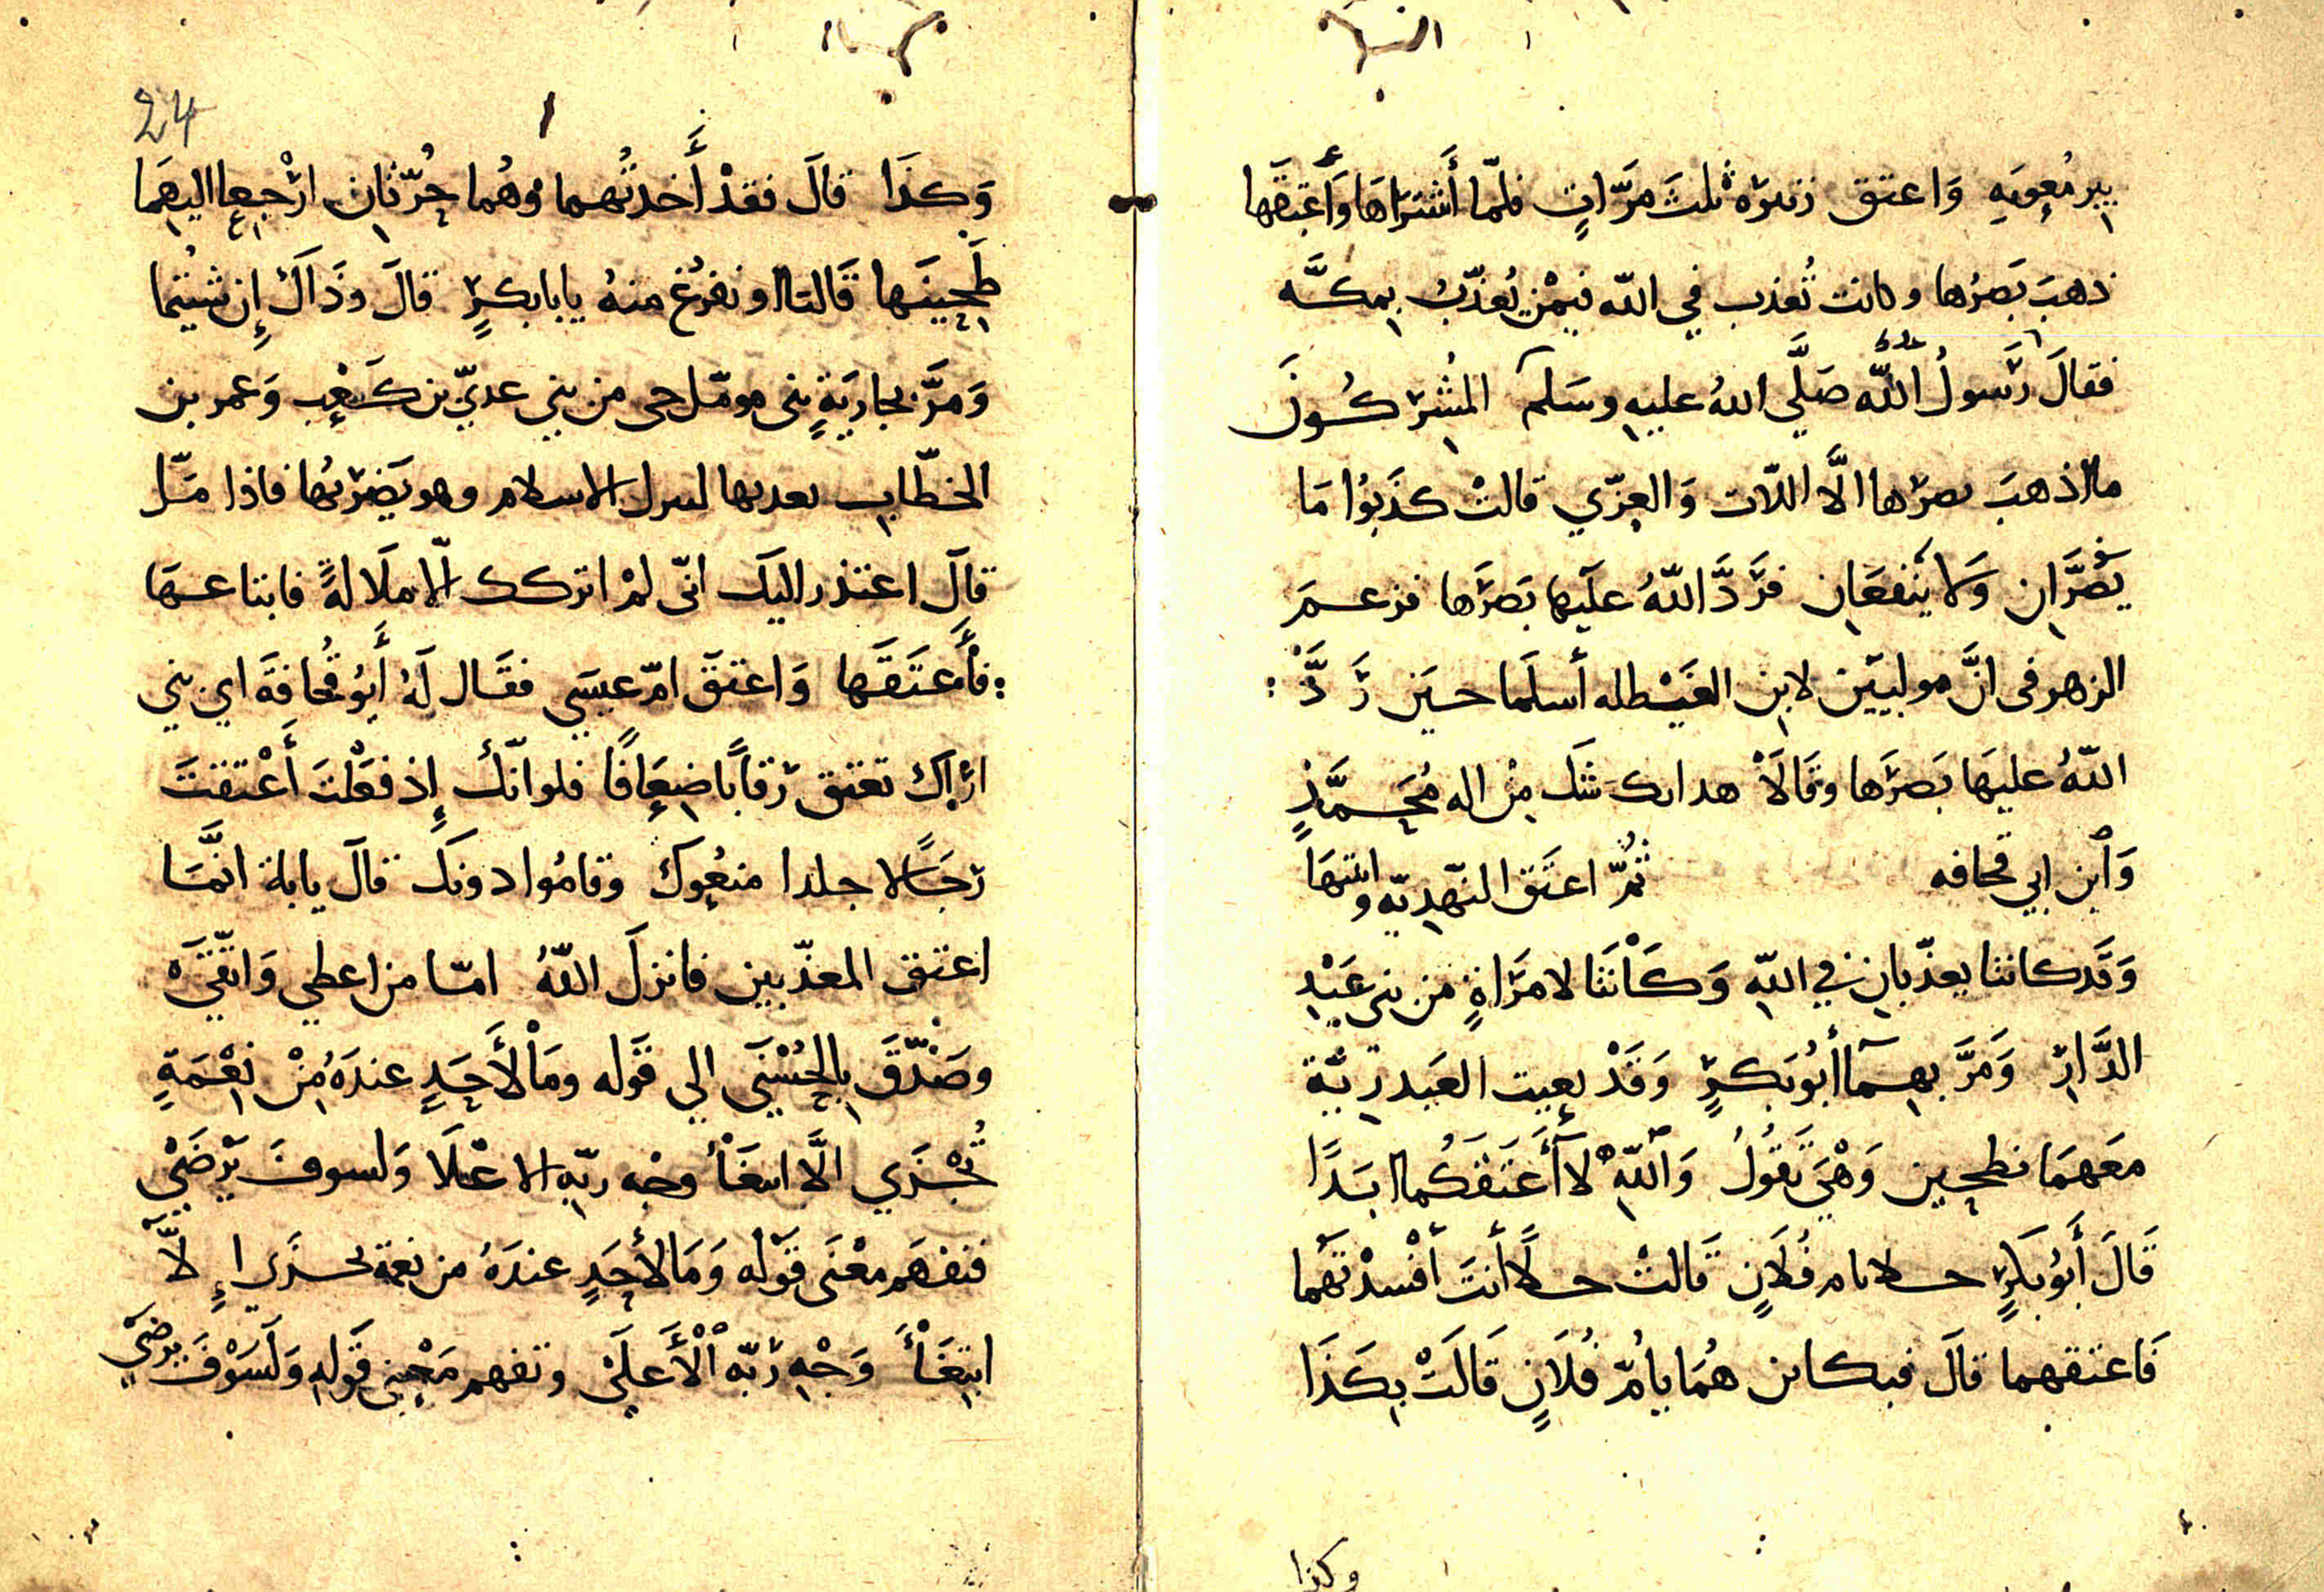 ببر مُعوِيَهِ وَاعتق زنيرَه ثلثَ مَرَّاتٍ فلمّا أَشتَرَاهَا وَأَعتَقَها
ذهبَ بَصَرُها وكانت تُعذب في اللّه فيمْن يُعذّبُ بِمكَّه
فقالَ رَسولُ اللّه صَلَّي اللهُ عليهِ وسَلم المُشِرَكُونَ
ما اذهبَ بصرَها الَّا اللّات وَالعِزّي قالتْ كذَبوُا مَا
يَضُرَّانِ وَلا يَنفعَانِ فرَدَّ اللّهُ عليَها بَصَرَها فزعمَ
الزهرى انَّ موليَين لابنِ الغَيْطله أسلمَا حينَ رَدَّ :
اللّهُ عليهَا بَصَرَها وقَالَا هدا لا شك مِنْ اله مُحَمَّدٍ
وَٱبن ابي قحافه ثُمَّ اعتَق النّهدِيّه وابنتهَا
وَقَد كانتا يعذّبانِ في اللّهِ وَكَانَتَا لامَرَاةٍ من بنى عَبْدِ
الدَّارِ وَمَرَّ بهِمَا أَبُو بَكرٍ وَقَدْ بعِيت العَبدرِيَّة
مَعَهمَا تطحِين وَهْيَ تقُولُ وَاللّهِ لا أَعتَقكُما ابَدًا
قَالَ أَبوُ بَكرٍ حلا يام فُلَانٍ قَالتْ حلًا أنتَ أَفْسدْتهَما
فَاعتقهما قالَ فبكاين هُمَا يا أمّ فُلَانٍ قَالَتْ بِكَذَا
وكذا
24
وَكذَا قالَ فقدْ أَخدتُهما وَهُما حُرّتانِ ارْجِعِا اليهِمَا
طَحِينَها قَالتا او نفرُغ منهُ يا بابكرٍ قالَ وذَاكَ إِن شئِتُما
وَمرَّ بجارِيَةٍ بنى مومّل حى من بني عديّ بن كَعْبِ وَعمر بن
الخطّابِ يعدبها لترك الاسلام وهو يَضرَبُها فاذا مَلّ
قالَ اعتذر اليكَ انّى لمْ اتركك الّا ملَالةً فابتاعهَا
: فأَعتَقَها وَاعتقَ امّ عبسَي فقال لَهُ أَبوُ قُحَافَةَ اي بني
ارَاكَ تعتق رَقابًا ضِعَافًا فلوانّكَ إِذ فعَلْتَ أَعْتقتَ
رَجَالًا جلدا منعُوكَ وقامُوا دونكَ قالَ يابة انّمَا
اعتق المعذّبين فانزلَ اللّهُ امّا من اعطي وَاتّقَي
وصَدَّقَ بِالحُسْنَي الي قَوله ومَا لأَحَدٍ عندَهُ مِنْ نِعْمَةٍ
تُجْزَي الَّا ابتغَأ وجْه ربِّه الاعْلَا وَلسوفَ يَرْضَيْ
فتفهَم معْنَى قَوْله وَمَا لأَحَدٍ عندَهُ من نعمة تجزَي إِلَّا
ابتِغَأَ وَجْهِ رَبّه الْأَعلَى وتفهم مَعْنِى قَولهِ وَلَسَوْفَ يرضَي